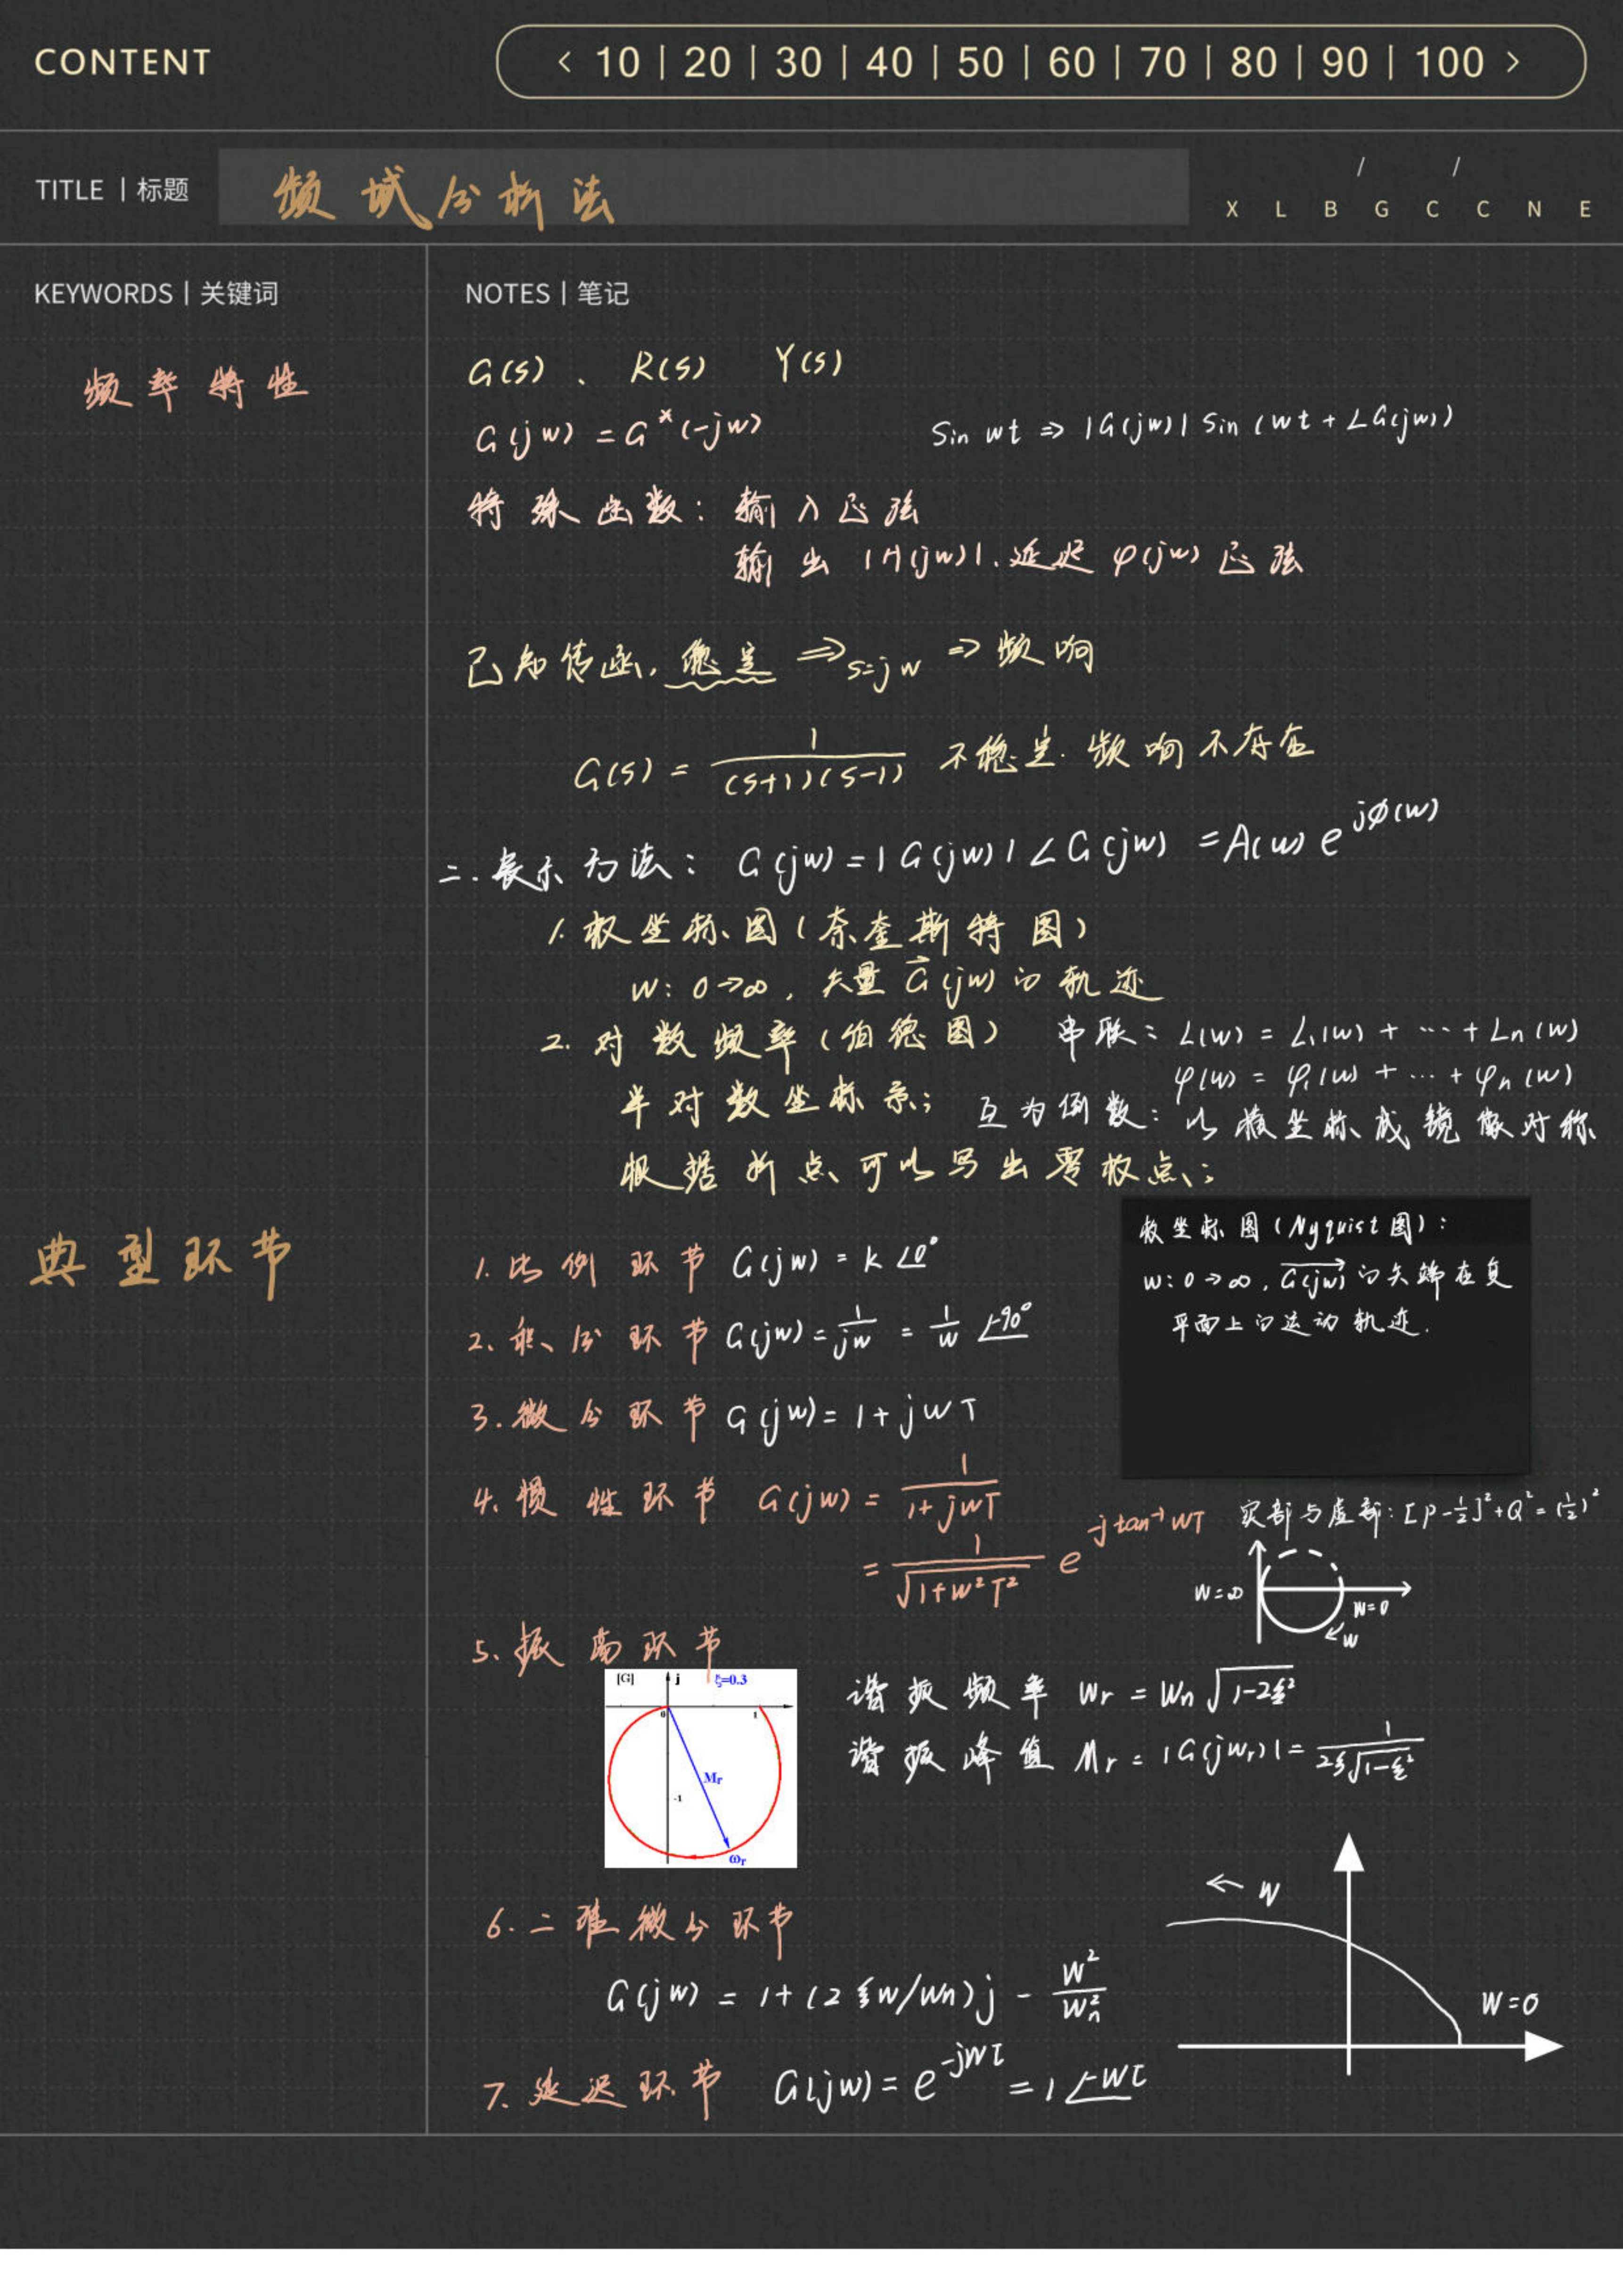 CONTENT
< 10 | 20 | 30 | 40 | 50 | 60 | 70 | 80 | 90 | 100 >
TITLE | 标题
频域分析法
/ /
X L B G C C N E
KEYWORDS | 关键词
NOTES | 笔记
频率特性
G(s)、 R(s) Y(s)
G(jw) = G*(-jw)
Sin wt ⇒ |G(jw)| Sin (wt + ∠G(jw))
特殊函数: 输入正弦
输出 |A(jw)|、延迟 φ(jw) 正弦
已知传函, 稳定 ⇒ s=jw ⇒ 频响
G(s) = 1/((s+1)(s-1)) 不稳定. 频响不存在
二. 表示方法: G(jw) = |G(jw)| ∠G(jw) = A(w) e^{jφ(w)}
1. 极坐标图 (奈奎斯特图)
w: 0→∞, 矢量 G⃗(jw) 的轨迹
2. 对数频率 (伯德图)
串联: L(w) = L₁(w) + ⋯ + Ln(w)
φ(w) = φ₁(w) + ⋯ + φn(w)
半对数坐标系;
互为倒数: 以横坐标成镜像对称
根据折点可以写出零极点;
典型环节
极坐标图 (Nyquist图):
w: 0→∞, G(jw) 的矢端在复
平面上的运动轨迹.
1. 比例环节 G(jw) = k ∠0°
2、积分环节 G(jw) = 1/jw = 1/w ∠-90°
3. 微分环节 G(jw) = 1 + jwT
4. 惯性环节 G(jw) = 1/(1+jwT)
= 1/√(1+w²T²) e^{-jtan⁻¹wT}
实部与虚部: [P-1/2]² + Q² = (1/2)²
w=∞
w=0
w
5. 振荡环节
[G] j ξ=0.3
0 1
Mr
-1
ωr
谐振频率 wr = wn √(1-2ξ²)
谐振峰值 Mr = |G(jwr)| = 1/(2ξ√(1-ξ²))
← w
w=0
6. 二阶微分环节
G(jw) = 1 + (2ξw/wn)j - w²/wn²
7. 延迟环节 G(jw) = e^{-jwτ} = 1 ∠-wτ